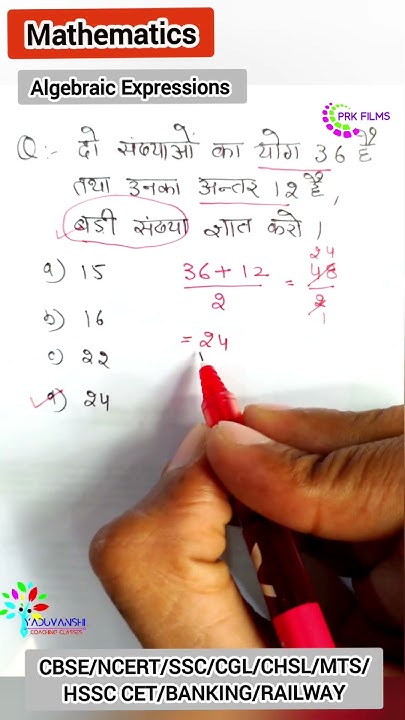 Mathematics
Algebraic Expressions
PRK FILMS
Q:- दो संख्याओं का योग 36 है
तथा उनका अन्तर 12 है,
बडी संख्या ज्ञात करो।
a) 15
b) 16
c) 22
d) 24
36 + 12 / 2 = 48 / 2
24
1
= 24
YADUVANSHI
COACHING CLASSES
CBSE/NCERT/SSC/CGL/CHSL/MTS/
HSSC CET/BANKING/RAILWAY